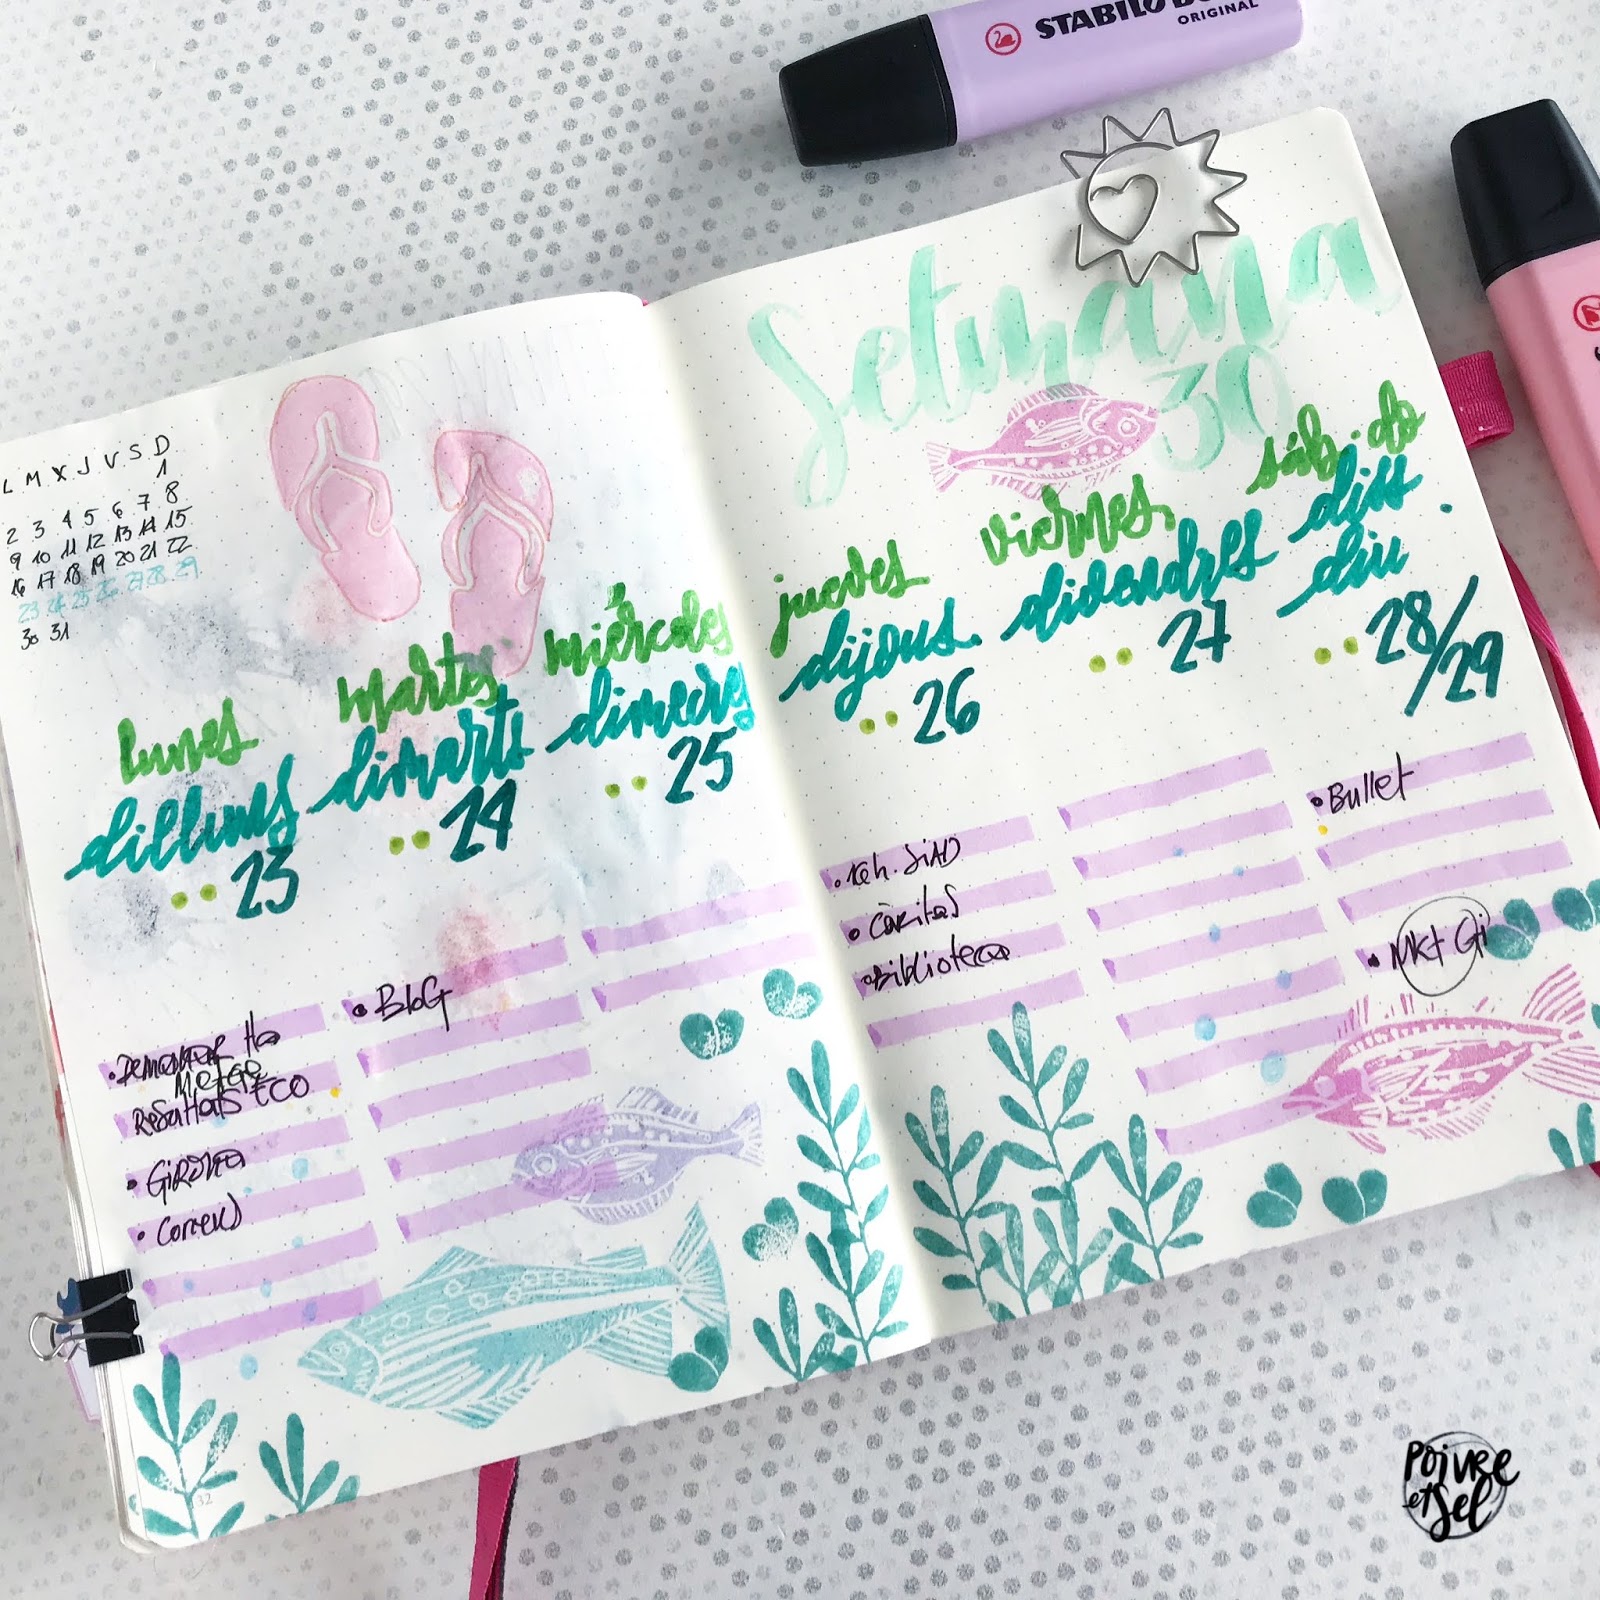 STABILO
ORIGINAL
Setmana
30
L M X J V S D
1
2 3 4 5 6 7 8
9 10 11 12 13 14 15
16 17 18 19 20 21 22
23 24 25 26 27 28 29
30 31
lunes
dilluns
23
martes
dimarts
24
miércoles
dimecres
25
• Demanar Ha
Metge
Resultats ECO
• Girona
• Correus
• BloG
32
jueves
dijous.
26
viernes
divendres
27
sáb. do
diss.
diu
28/29
SiAD
• Càritas
• Biblioteca
• Bullet
• Mkt Gi
Poivre
et Sel